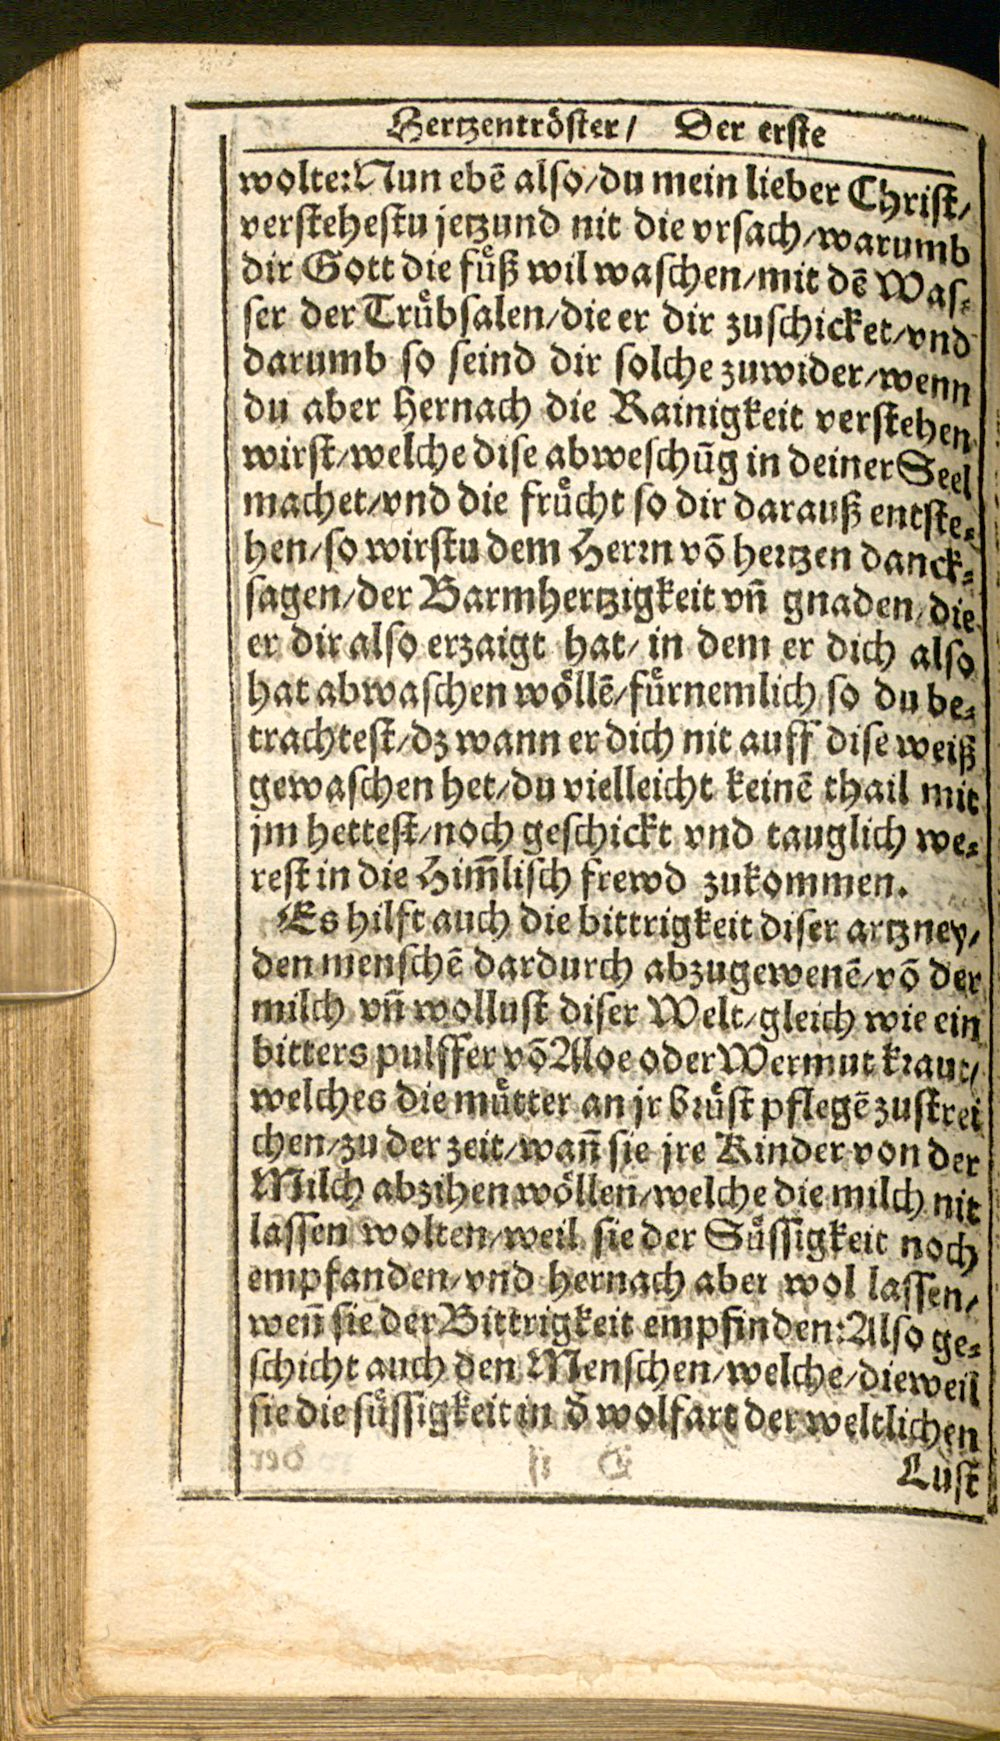 Hertzentröster / Der erste
wolte: Nun ebẽ also / du mein lieber Christ /
verstehestu jetzund nit die vrsach / warumb
dir Gott die fuͤß wil waschen / mit dẽ Was-
ser der Truͤbsalen / die er dir zuschicket / vnd
darumb so seind dir solche zuwider / wenn
du aber hernach die Rainigkeit verstehen
wirst / welche dise abweschũg in deiner Seel
machet / vnd die fruͤcht so dir darauß entste-
hen / so wirstu dem Herrn võ hertzen danck-
sagen / der Barmhertzigkeit vñ gnaden / die
er dir also erzaigt hat / in dem er dich also
hat abwaschen woͤllẽ / fuͤrnemlich so du be-
trachtest / dz wann er dich nit auff dise weiß
gewaschen het / du vielleicht keinẽ thail mit
jm hettest / noch geschickt vnd tauglich we-
rest in die Him̃lisch frewd zukommen.
Es hilft auch die bittrigkeit diser artzney /
den menschẽ dardurch abzugewenẽ / võ der
milch vñ wollust diser Welt / gleich wie ein
bitters pulffer võ Aloe oder Wermut kraut /
welches die muͤtter an jr bruͤst pflegẽ zustrei
chen / zu der zeit / wañ sie jre Kinder von der
Milch abzihen woͤllen / welche die milch nit
lassen wolten / weil sie der Suͤssigkeit noch
empfanden / vnd hernach aber wol lassen /
weñ sie der Bittrigkeit empfinden: Also ge-
schicht auch den Menschen / welche / dieweil
sie die suͤssigkeit in d̃ wolfart der weltlichen
Lust